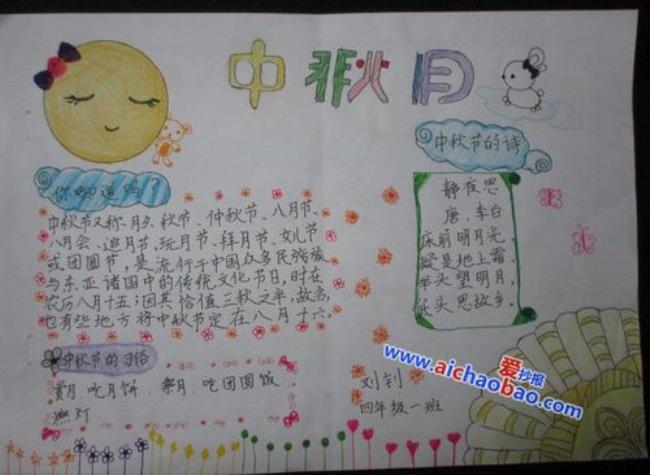 中秋月
中秋节的诗
你知道吗？
中秋节又称、月夕、秋节、仲秋节、八月节、
八月会、追月节、玩月节、拜月节、女儿节
或团圆节，是流行于中国众多民族族
与东亚诸国中的传统文化节日，时在
农历八月十五；因其恰值三秋之半，故名，
也有些地方将中秋节定在八月十六。
静夜思
唐、李白
床前明月光，
疑是地上霜。
举头望明月，
低头思故乡。
中秋节的习俗
赏月、吃月饼、祭月、吃团圆饭、
燃灯
刘钊
四年级一班
爱抄报
www.aichaobao.com